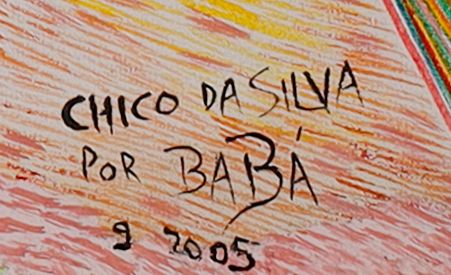 CHICO DA SILVA
POR BABÁ
9 2005